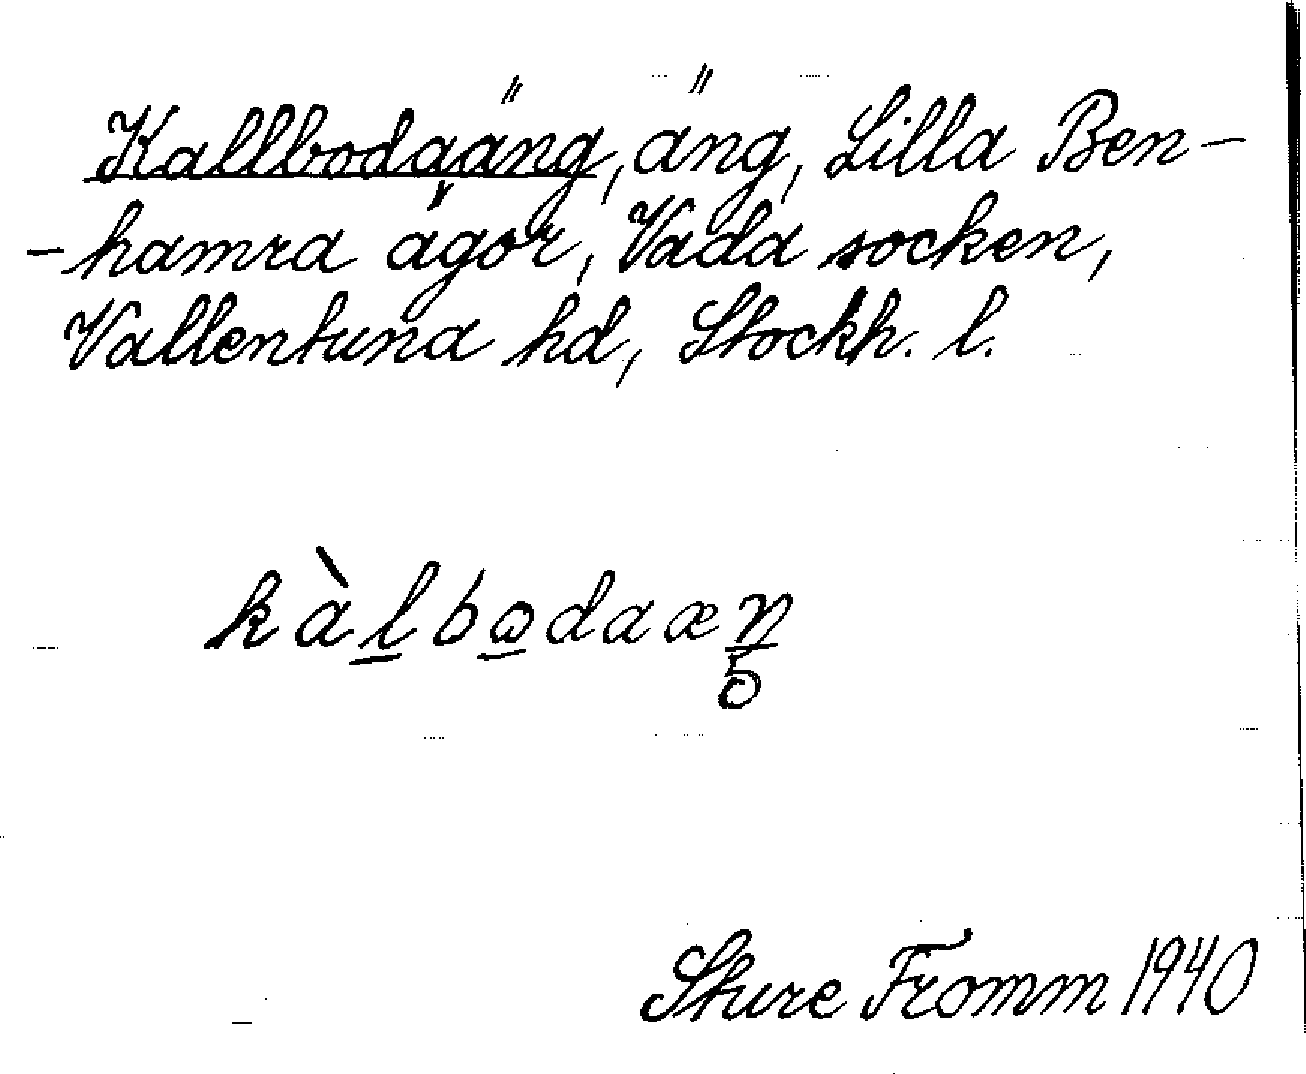 Kallbodaäng, äng, Lilla Ben-
-hamra ägor, Vada socken,
Vallentuna hd, Stockh. l.
kàlbωdaæŋ
5
Sture Fromm 1940